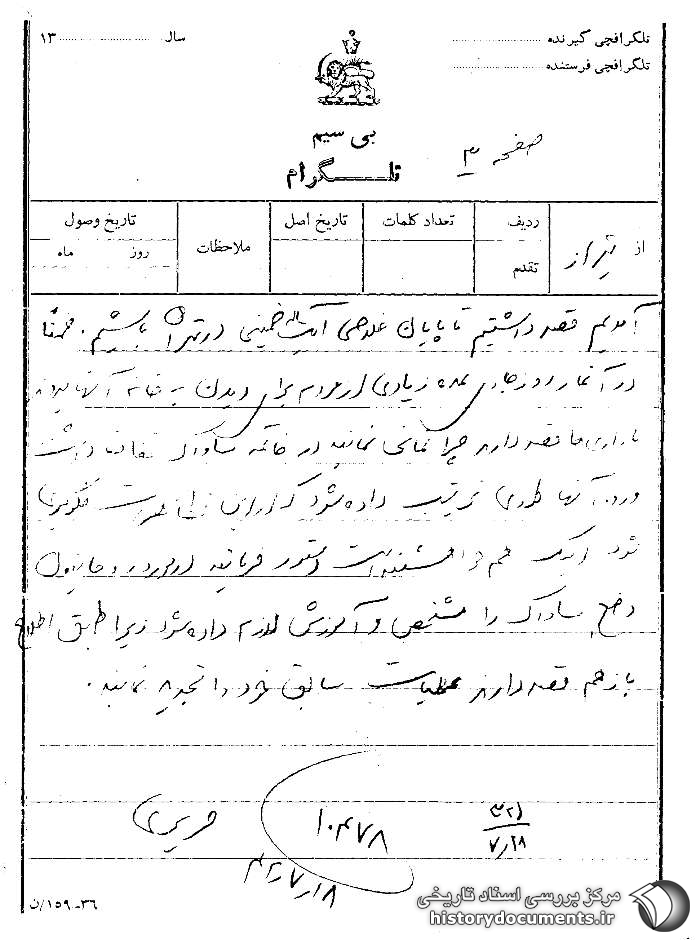 تلگرافچی گیرنده
تلگرافچی فرستنده
سال ۱۳
بی سیم
تلگرام
صفحه ۳
از شیراز
ردیف
تقدم
تعداد کلمات
تاریخ اصل
ملاحظات
تاریخ وصول
روز ماه
آمدیم قصد داشتیم تا پایان خلاصی آیت‌الله خمینی در تهران باشیم. ضمنا
در آغاز روز جاری عده زیادی از مردم برای دیدن به خانه آنها
بازاری‌ها قصد دارند چراغانی نمایند در خاتمه ساواک داشت
ورود آنها طوری ترتیب داده شود که از جلوگیری
شود اینک هم دستور فرمائید
وضع ساواک را مشخص و آموزش لازم داده شود زیرا طبق اطلاع
باز هم قصد دارند عملیات سابق خود را تجدید نمایند.
حریری
۱۰۴۷۸
۴۲/۷/۱۸
۳۲۱
۷/۱۸
۳۶-۱۵۹/ن
مرکز بررسی اسناد تاریخی
historydocuments.ir